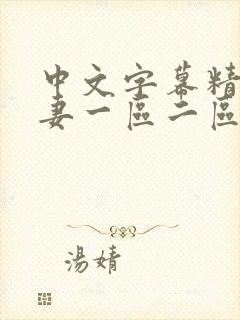 中文字幕精
妻一區二區
湯婧